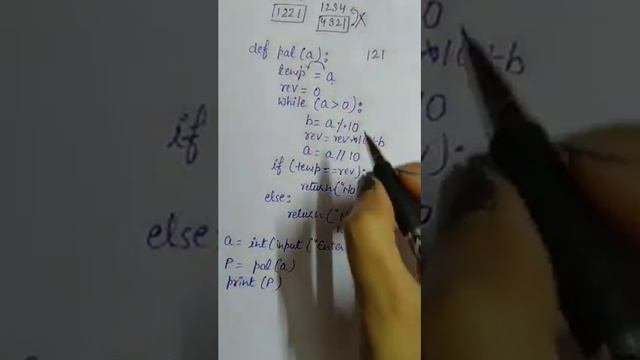 1234
1221 4321
def pal(a): 121
temp = a
rev = 0
while (a>0):
b = a%10
rev = rev*10+b
a = a//10
if (temp==rev):
return("No
else:
return("N
a = int(input("Enter
P = pal(a)
print(P)